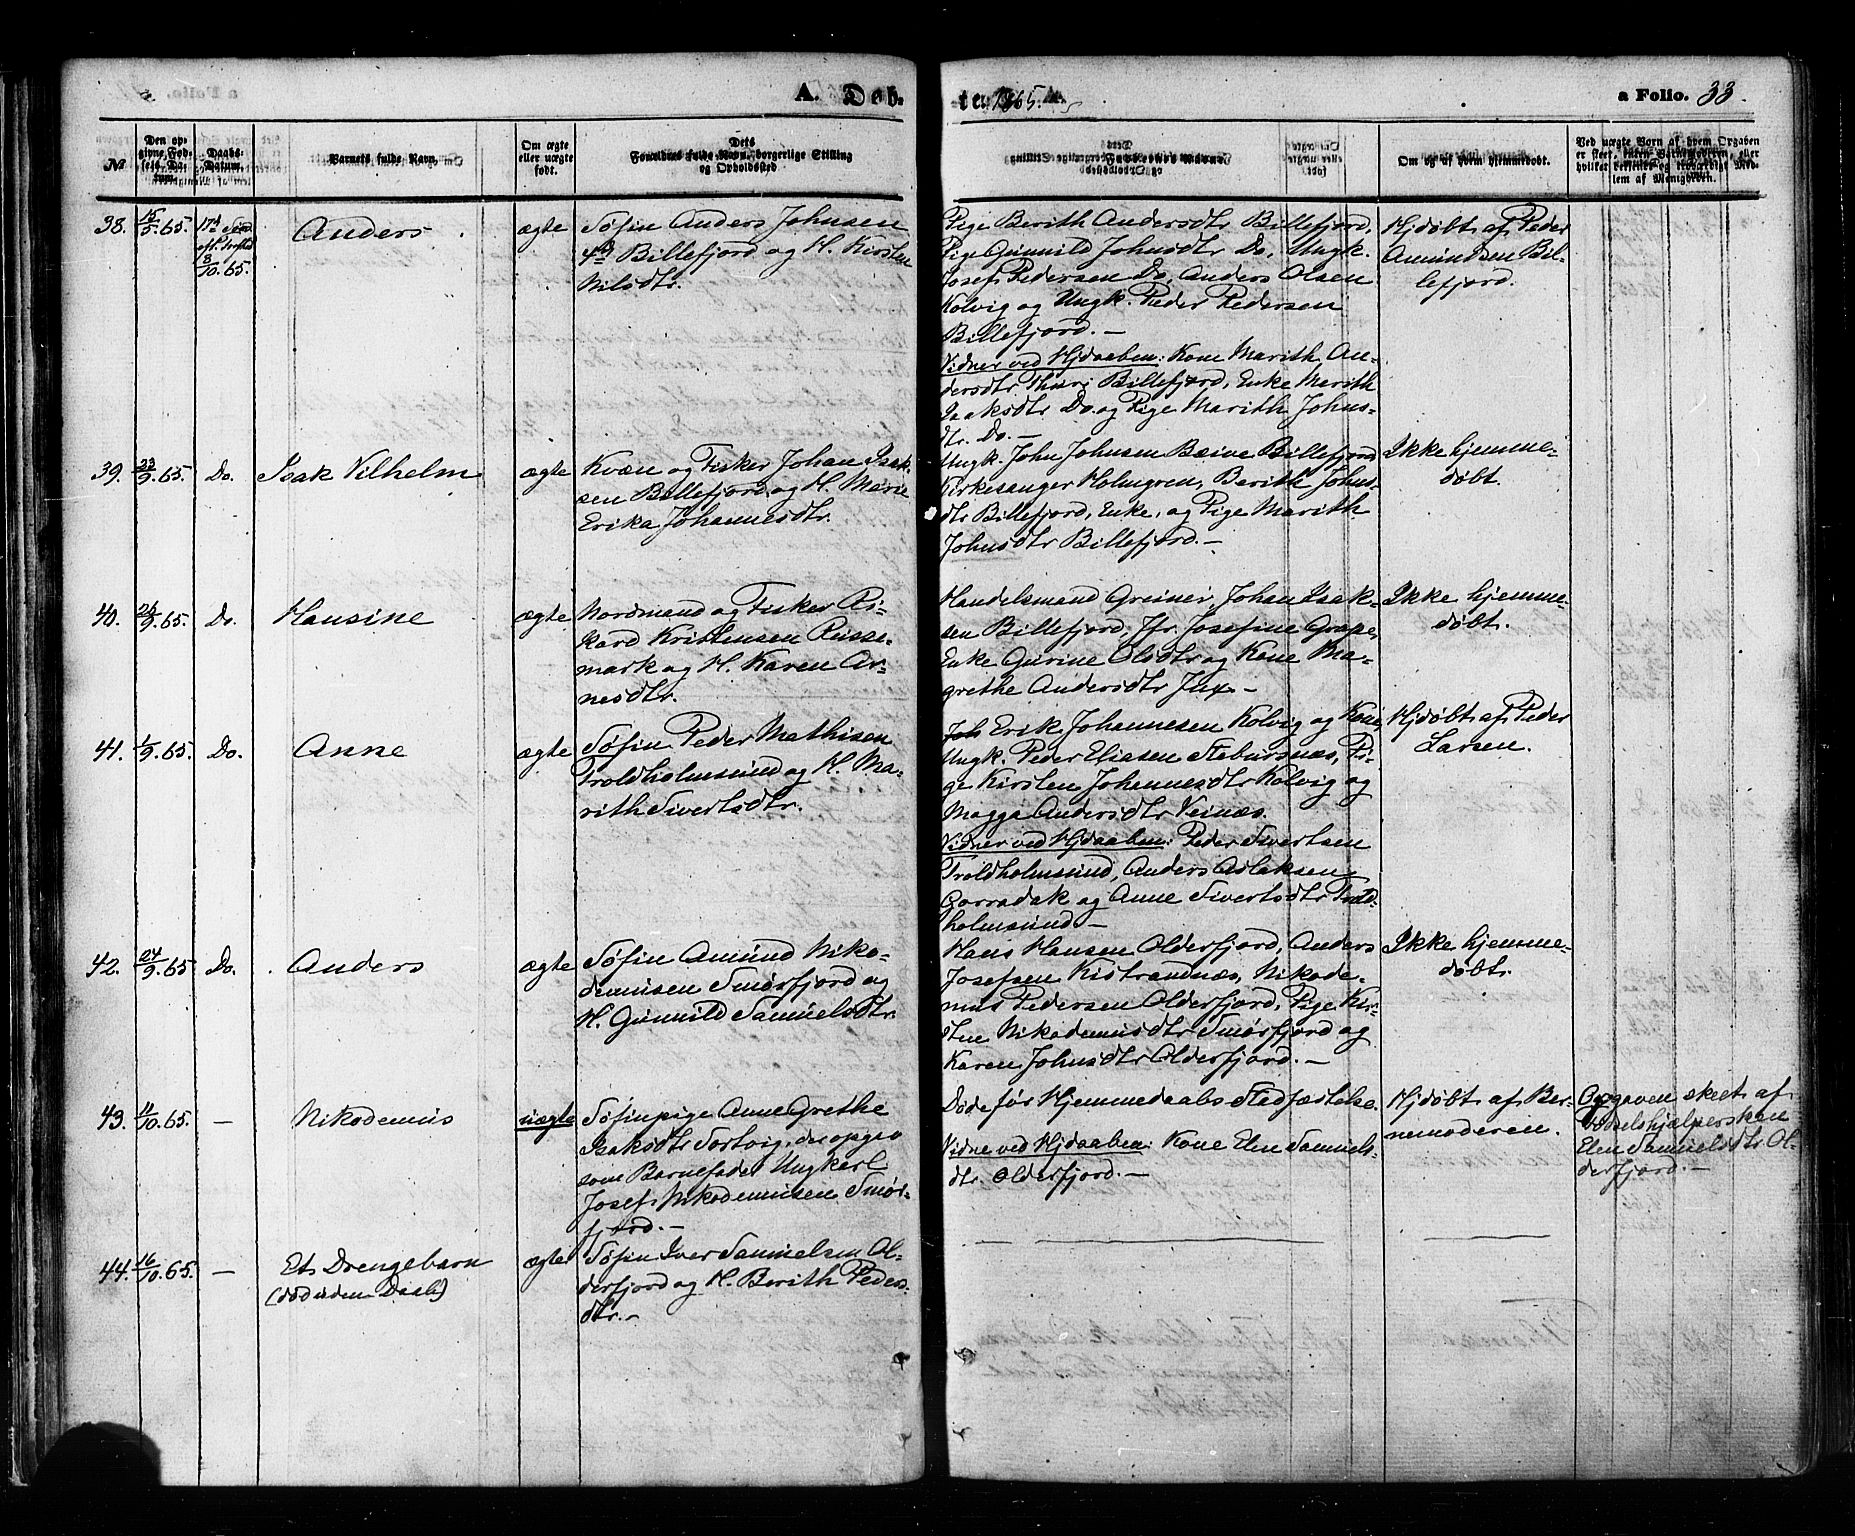 A. Døb-
te 1865.
a Folio. 33.
№
Den op-
givne Fød-
sels Da-
tum.
Daabs-
Datum.
Barnets fulde Navn.
Om ægte
eller uægte
født.
Dets
Forældres fulde Navn, borgerlige Stilling
og Opholdssted
Faddernes Navne
Om og af hvem hjemmedøbt.
Ved uægte Børn af hvem Opgaven
er skeet, enten Barnemoderen, eller
hvilket bekjendt og troværdigt Med-
lem af Menigheden.
38.
15/5.65.
8/10.65.
Anders
ægte
Søfin Anders Johnsen
Billefjord og H. Kirsten
Nilsdtr.
Pige Berith Andersdtr Billefjord,
Pige Gunnild Johnsdtr Do, Ungk.
Josef Pedersen Do, Anders Olsen
Kolvig og Ungk. Peder Pedersen
Billefjord.—
Vidner ved Hjdaaben: Kone Marith An-
dersdtr Thuri Billefjord, Enke Marith
Isaksdtr Do. og Pige Marith Johns-
dtr. Do.—
Hjdøbt af Peder
Amundsen Bil-
lefjord.
39.
23/9.65
Do.
Isak Vilhelm
ægte
Kvæn og Fisker Johan Isak-
sen Billefjord og H. Marie
Erika Johannesdtr.
Ungk. John Johnsen Bæive Billefjord
Kirkesanger Holmgren, Berith Johns-
dtr Billefjord, Enke, og Pige Marith
Johnsdtr Billefjord.—
Ikke hjemme-
døbt.
40.
26/9.65.
Do.
Hansine
ægte
Nordmand og Fisker Ri-
kard Kristensen Russe-
mark og H. Karen Ar-
nesdtr.
Handelsmand Greiner, Johan Isak-
sen Billefjord, Jfr. Josefine Grape,
Enke Gurine Olsdtr og Kone Ma-
grethe Andersdtr Jux—
Ikke hjemme-
døbt.
41.
1/9.65.
Do.
Anne
ægte
Søfin Peder Mathisen
Troldholmsund og H. Ma-
rith Sivertsdtr.
Erik Johannesen Kolvig og Kone,
Ungk. Peder Eliasen Stabursnæs, Pi-
ge Kirsten Johannesdtr Kolvig og
Magga Andersdtr Veinæs.
Vidner ved Hjdaaben: Peder Sivertsen
Troldholmsund, Anders Aslaksen
Gorradak og Anne Sivertsdtr Trold-
holmsund—
Hjdøbt af Peder
Larsen.
42.
24/9.65
Do.
Anders
ægte
Søfin Amund Niko-
demusen Smørfjord og
H. Gunnild Samuelsdtr.
Hans Hansen Olderfjord, Anders
Josefsen Kistrandnæs, Nikode-
mus Pedersen Olderfjord, Pige Kir-
stine Nikodemusdtr Smørfjord og
Karen Johnsdtr Olderfjord.—
Ikke hjemme-
døbt.
43.
11/10.65.
—
Nikodemus
uægte
Søfinpige Anne Grethe
Isaksdtr Sortvig, der opgav
som Barnefader Ungkarl
Josef Nikodemusen Smør-
fjord.—
Døde før Hjemmedaabs Stadfæstelse.
Vidne ved Hjdaaben: Kone Elen Samuels-
dtr. Olderfjord.—
Hjdøbt af Bar-
nemoderen.
Opgaven skeet af
Fødselshjælpersken
Elen Samuelsdtr Ol-
derfjord.—
44.
16/10.65.
—
Et Drengebarn
(død uden Daab)
ægte
Søfin Iver Samuelsen Ol-
derfjord og H. Berith Peders-
dtr.—